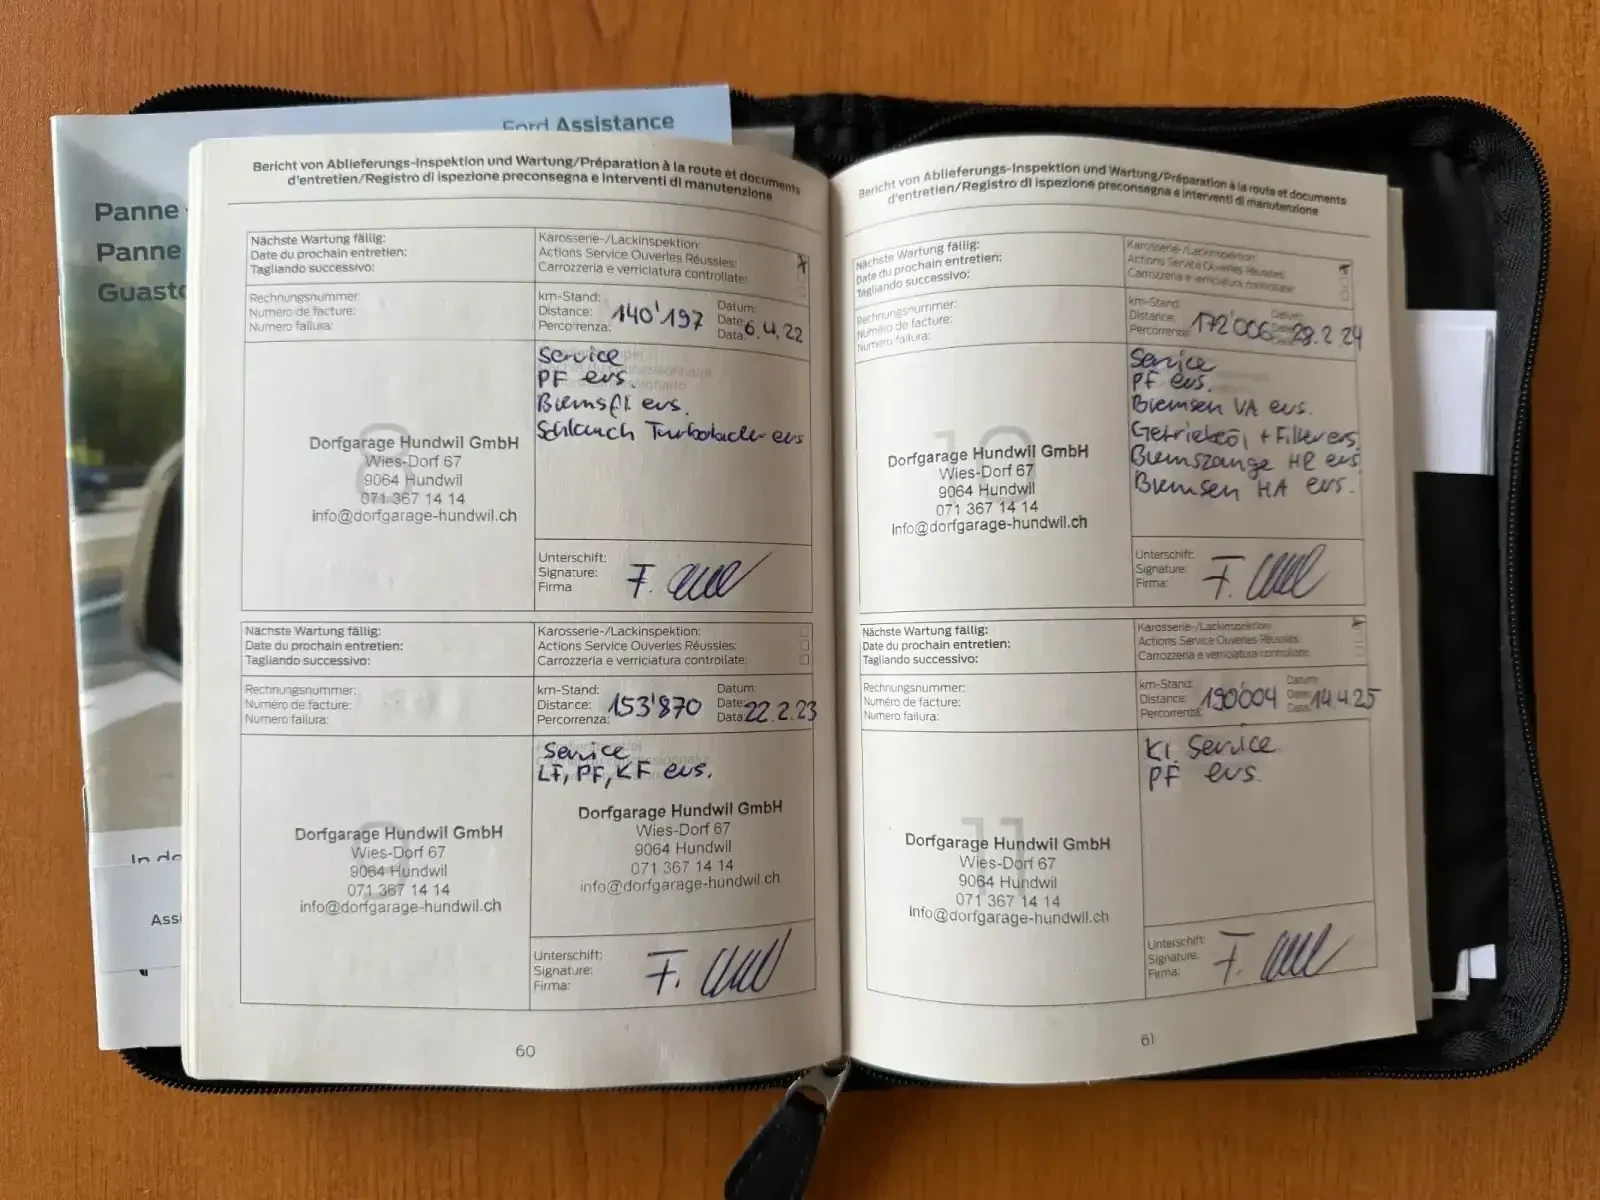 Ford Assistance
Panne
Panne
Guasto
In de
Assi
Bericht von Ablieferungs-Inspektion und Wartung/Préparation à la route et documents
d'entretien/Registro di ispezione preconsegna e interventi di manutenzione
Nächste Wartung fällig:
Date du prochain entretien:
Tagliando successivo:
Karosserie-/Lackinspektion:
Actions Service Ouverles Réussies:
Carrozzeria e verriciatura controllate:
Rechnungsnummer
Numéro de facture:
Numero failura:
km-Stand:
Distance:
Percorrenza:
140'197
Datum:
Date:
Data:
6.4.22
8
Dorfgarage Hundwil GmbH
Wies-Dorf 67
9064 Hundwil
071 367 14 14
info@dorfgarage-hundwil.ch
Service
PF ers.
Bremsfl. ers.
Schlauch Turbolader ers
Unterschift:
Signature:
Firma
Nächste Wartung fällig:
Date du prochain entretien:
Tagliando successivo:
Karosserie-/Lackinspektion:
Actions Service Ouverles Réussies:
Carrozzeria e verriciatura controllate:
Rechnungsnummer:
Numéro de facture:
Numero failura:
km-Stand:
Distance:
Percorrenza:
153'870
Datum:
Date:
Data:
22.2.23
9
Dorfgarage Hundwil GmbH
Wies-Dorf 67
9064 Hundwil
071 367 14 14
info@dorfgarage-hundwil.ch
Service
LF, PF, KF ers.
Dorfgarage Hundwil GmbH
Wies-Dorf 67
9064 Hundwil
071 367 14 14
info@dorfgarage-hundwil.ch
Unterschift:
Signature:
Firma:
60
Bericht von Ablieferungs-Inspektion und Wartung/Préparation à la route et documents
d'entretien/Registro di ispezione preconsegna e interventi di manutenzione
Nächste Wartung fällig:
Date du prochain entretien:
Tagliando successivo:
Karosserie-/Lackinspektion:
Actions Service Ouverles Réussies:
Carrozzeria e verriciatura controllate:
Rechnungsnummer:
Numéro de facture:
Numero failura:
km-Stand:
Distance:
Percorrenza:
172'006
Datum:
28.2.24
10
Dorfgarage Hundwil GmbH
Wies-Dorf 67
9064 Hundwil
071 367 14 14
info@dorfgarage-hundwil.ch
Service
PF ers.
Bremsen VA ers.
Getriebeöl + Filter ers.
Bremszange HR ers.
Bremsen HA ers.
Unterschift:
Signature:
Firma:
Nächste Wartung fällig:
Date du prochain entretien:
Tagliando successivo:
Karosserie-/Lackinspektion:
Actions Service Ouverles Réussies:
Carrozzeria e verriciatura controllate:
Rechnungsnummer:
Numéro de facture:
Numero failura:
km-Stand:
Distance:
Percorrenza:
190'004
Datum:
Date:
Data:
14.4.25
11
Dorfgarage Hundwil GmbH
Wies-Dorf 67
9064 Hundwil
071 367 14 14
info@dorfgarage-hundwil.ch
Kl. Service
PF ers.
Unterschift:
Signature:
Firma:
61